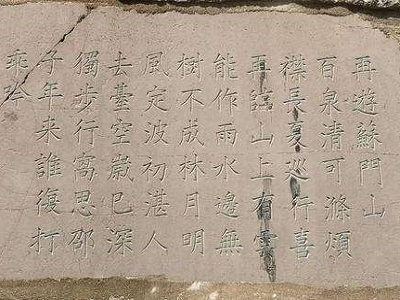 再遊蘇門山
百泉清可滌煩
襟長夏巡行喜
再臨山上有雲
能作雨水邊無
樹不成林月明
風定波初湛人
去臺空歲已深
獨步行窩思邵
子年来誰復打
乖吟